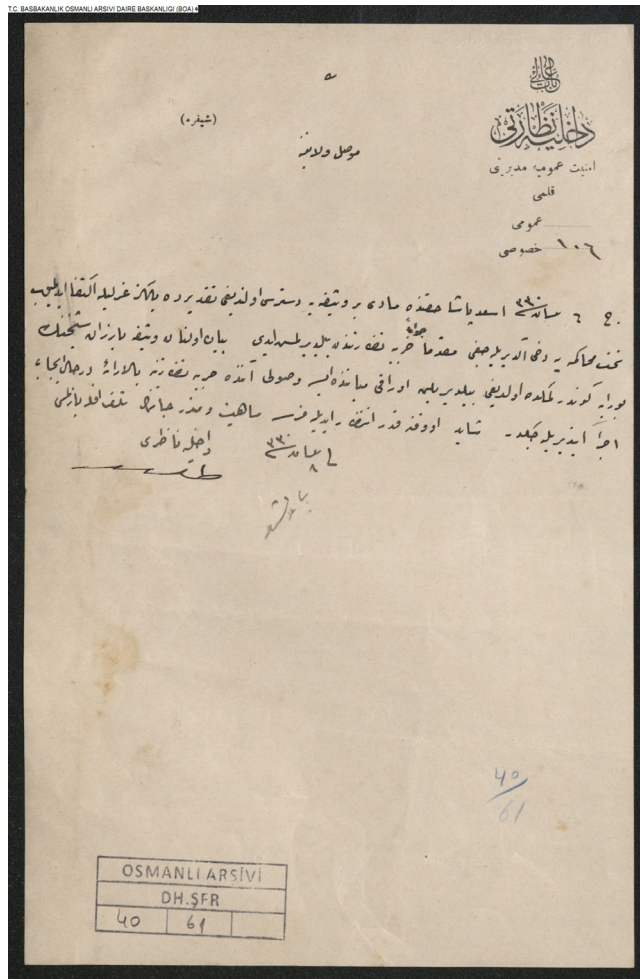 T.C. BASBAKANLIK OSMANLI ARSIVI DAIRE BASKANLIGI (BOA)
باب عالی
داخلیه نظارتی
امنیت عمومیه مدیریتی
قلمی
عمومی
١٠٦ خصوصی
(شیفره)
موصل ولایتنه
ج ٦ نیسان ٣٣٠ اسعد پاشا حقنده مادی بر وثیقه یه دسترس اولندیغی تقدیرده یالکز عزلیله اکتفا
تحت محاکمه یه دخی آلدیریله جغی مقدما حربیه نظارتندن بیلدیرلمش ایدی بیان اولنان وثیقه بارزان شیخنك
بورایه کوندرلمکده اولدیغی بیلدیریلن اوراقی میاننده ایسه وصولی آننده حربیه نظارتنه بالارائه درحال ایجابی
اجرا ایتدیریله جکدر شاید او وقته قدر انتظار ماهیت و مندرجاتنك تلغرافله یازلمسی
٨ نیسان ٣٣٠
داخلیه ناظری
طلعت
40
61
OSMANLI ARSİVİ
DH.ŞFR
40 61